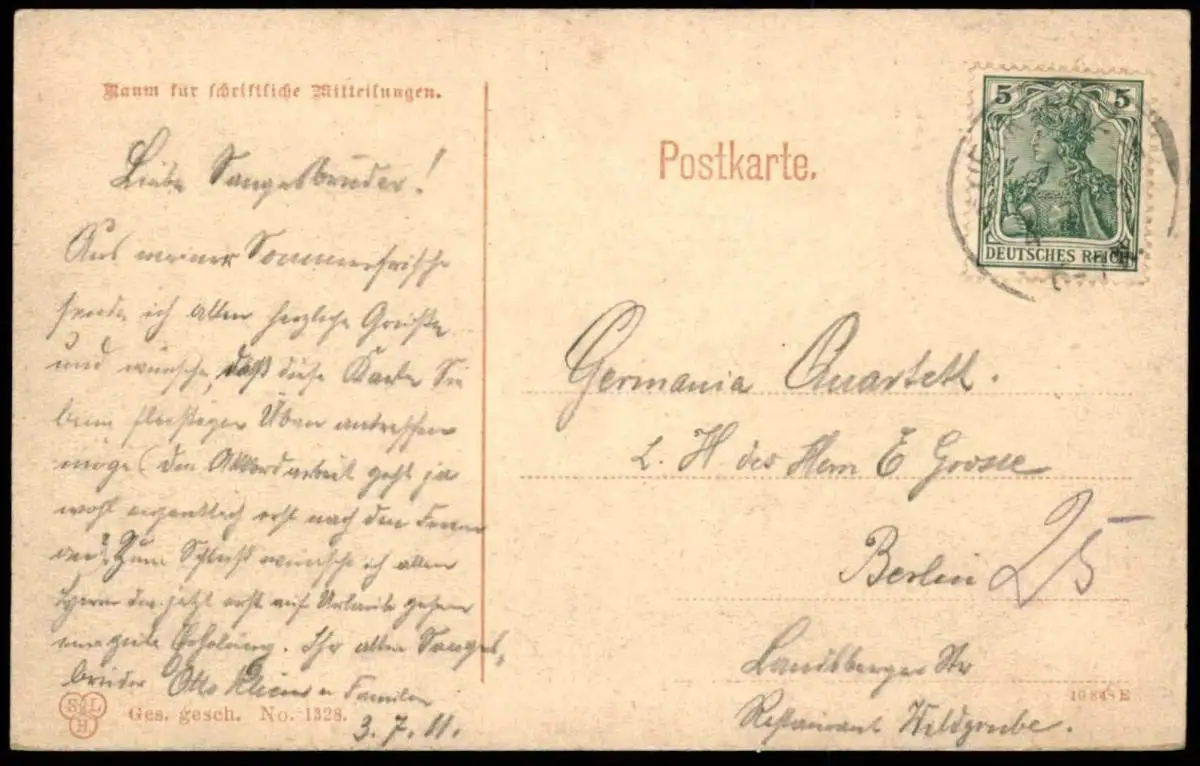 Raum für schriftliche Mitteilungen.
Liebe Sangesbrüder!
Aus meiner Sommerfrische
sende ich allen herzliche Grüße
und wünsche, daß diese Karte Sie
beim fleißigen Üben antreffen
möge (den Akkordarbeit geht ja
wohl eigentlich erst nach den Ferien
Zum Schluß wünsche ich allen
Herrn die jetzt erst auf Urlaub gehen
eine gute Erholung. Ihr alter Sanges-
bruder Otto u Familie
3.7.11.
SLH
Ges. gesch. No. 1328.
Postkarte.
5 5
DEUTSCHES REICH
Germania Quartett.
z. H des Herrn E Grosse
Berlin 25
Landsberger Str
Restaurant Wildgrube.